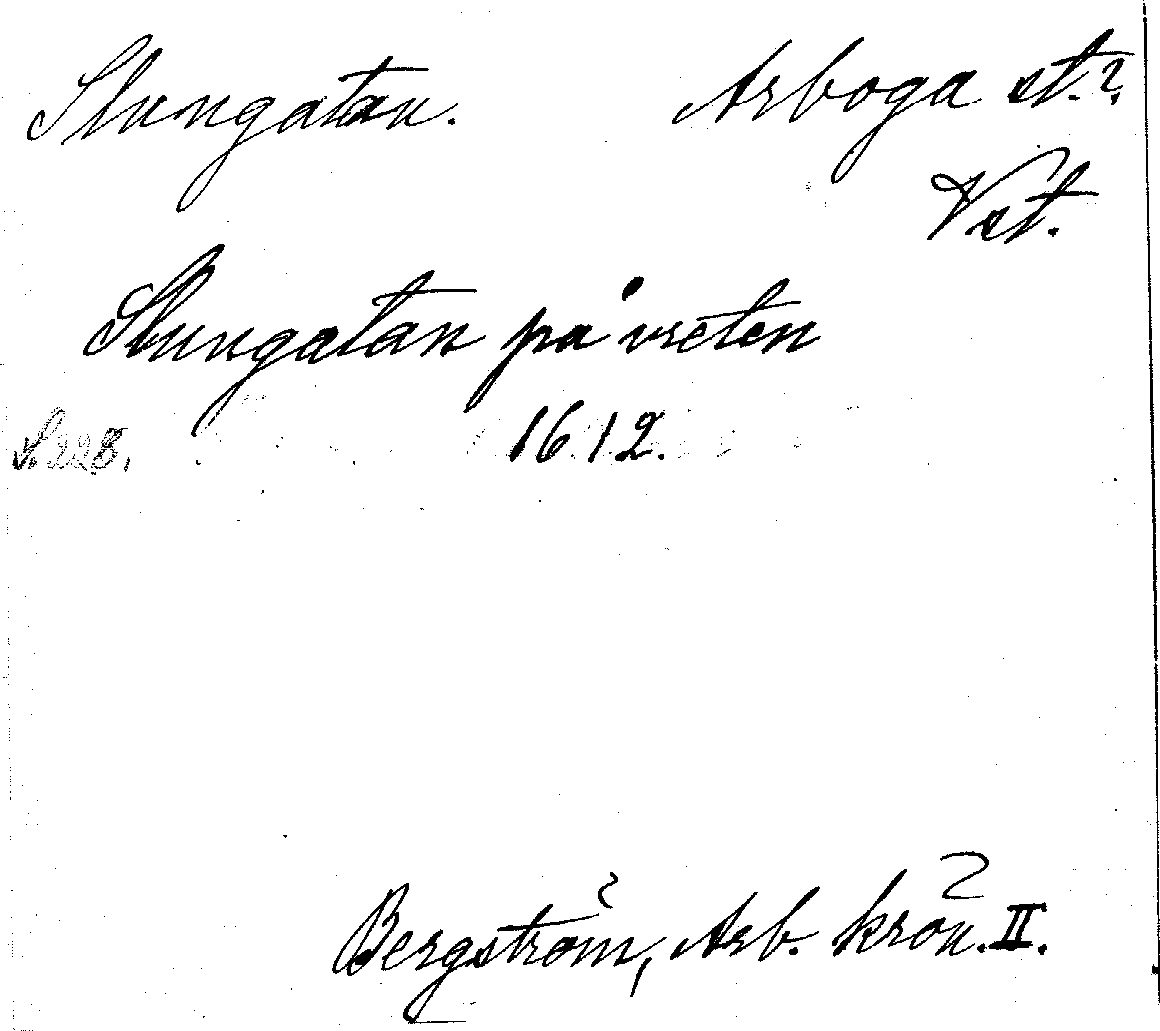 Slungatan. Arboga st.?
Vst.
Slungatan på vreten
S. 228. 1612.
Bergström, Arb. krön. II.